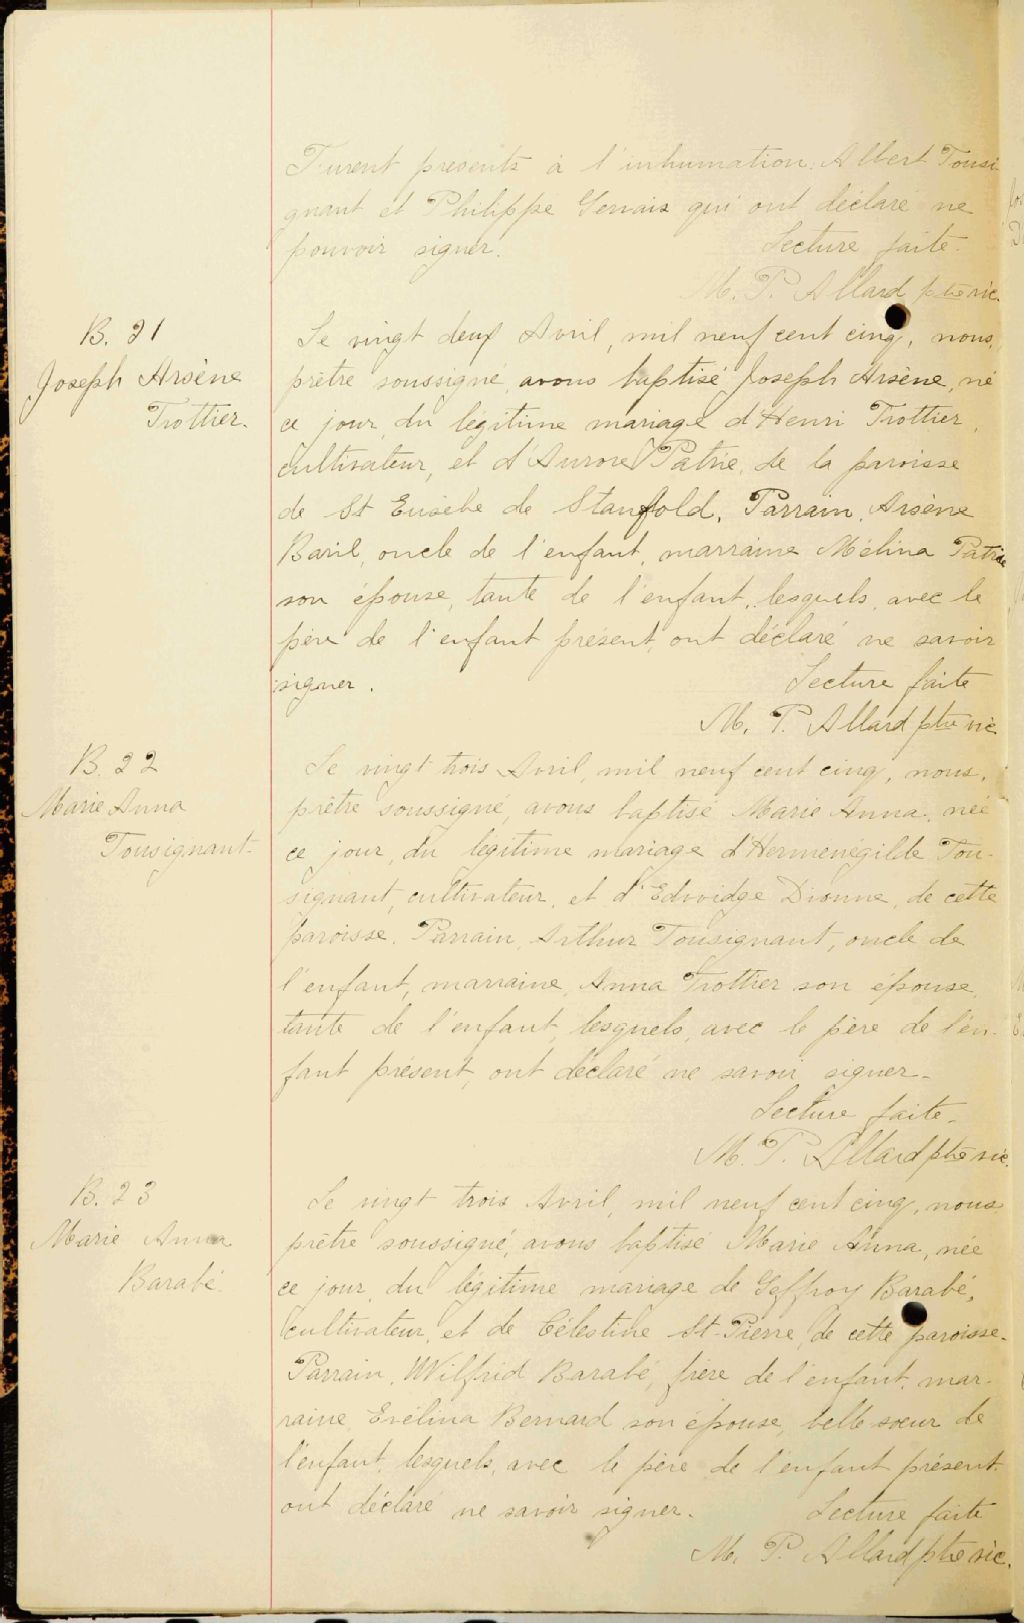 Furent présents à l'inhumation: Albert Tousi-
gnant et Philippe Gervais qui ont déclaré ne
pouvoir signer. Lecture faite.
M. P. Allard ptre vic.
B. 21
Joseph Arsène
Trottier.
Le vingt deux Avril, mil neuf cent cinq, nous,
prêtre soussigné, avons baptisé Joseph Arsène, né
ce jour, du légitime mariage d'Henri Trottier,
cultivateur, et d'Aurore Patrie, de la paroisse
de St Eusèbe de Stanfold. Parrain, Arsène
Baril, oncle de l'enfant, marraine Mélina Patrie
son épouse, tante de l'enfant, lesquels, avec le
père de l'enfant présent, ont déclaré ne savoir
signer. Lecture faite
M. P. Allard ptre vic
B. 22
Marie Anna
Tousignant.
Le vingt trois Avril, mil neuf cent cinq, nous,
prêtre soussigné, avons baptisé Marie Anna, née
ce jour, du légitime mariage d'Herménégilde Tou-
signant, cultivateur, et d'Edwidge Dionne, de cette
paroisse. Parrain, Arthur Tousignant, oncle de
l'enfant, marraine, Anna Trottier son épouse,
tante de l'enfant, lesquels, avec le père de l'en-
fant présent, ont déclaré ne savoir signer.
Lecture faite.
M. P. Allard ptre vic.
B. 23
Marie Anna
Barabé.
Le vingt trois Avril, mil neuf cent cinq, nous
prêtre soussigné, avons baptisé Marie Anna, née
ce jour, du légitime mariage de Geffroy Barabé,
cultivateur, et de Célestine St-Pierre, de cette paroisse.
Parrain, Wilfrid Barabé, frère de l'enfant, mar-
raine Evélina Bernard son épouse, belle-soeur de
l'enfant, lesquels, avec le père de l'enfant présent,
ont déclaré ne savoir signer. Lecture faite
M. P. Allard ptre vic.